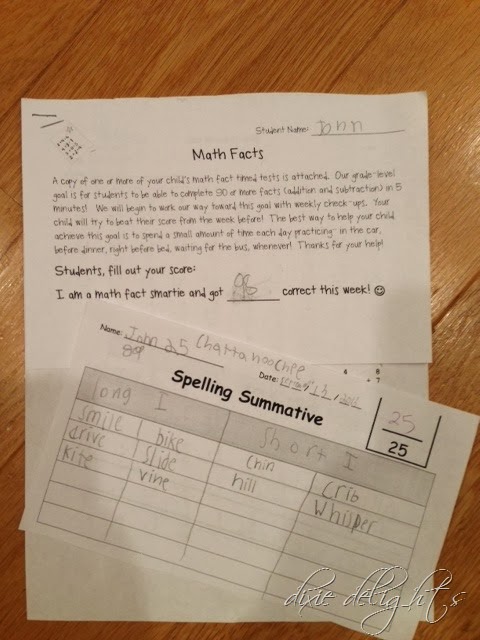 Student Name: John
Math Facts
A copy of one or more of your child's math fact timed tests is attached. Our grade-level
goal is for students to be able to complete 90 or more facts (addition and subtraction) in 5
minutes! We will begin to work our way toward this goal with weekly check-ups. Your
child will try to beat their score from the week before! The best way to help your child
achieve this goal is to spend a small amount of time each day practicing- in the car,
before dinner, right before bed, waiting for the bus, whenever! Thanks for your help!
Students, fill out your score:
I am a math fact smartie and got correct this week! ☺
Name: John 25 Chattahoochee
Date:
Spelling Summative
25
25
long I short I
smile bike chin crib
drive slide hill Whisper
kite vine
6 8
+ 7
dixie delights